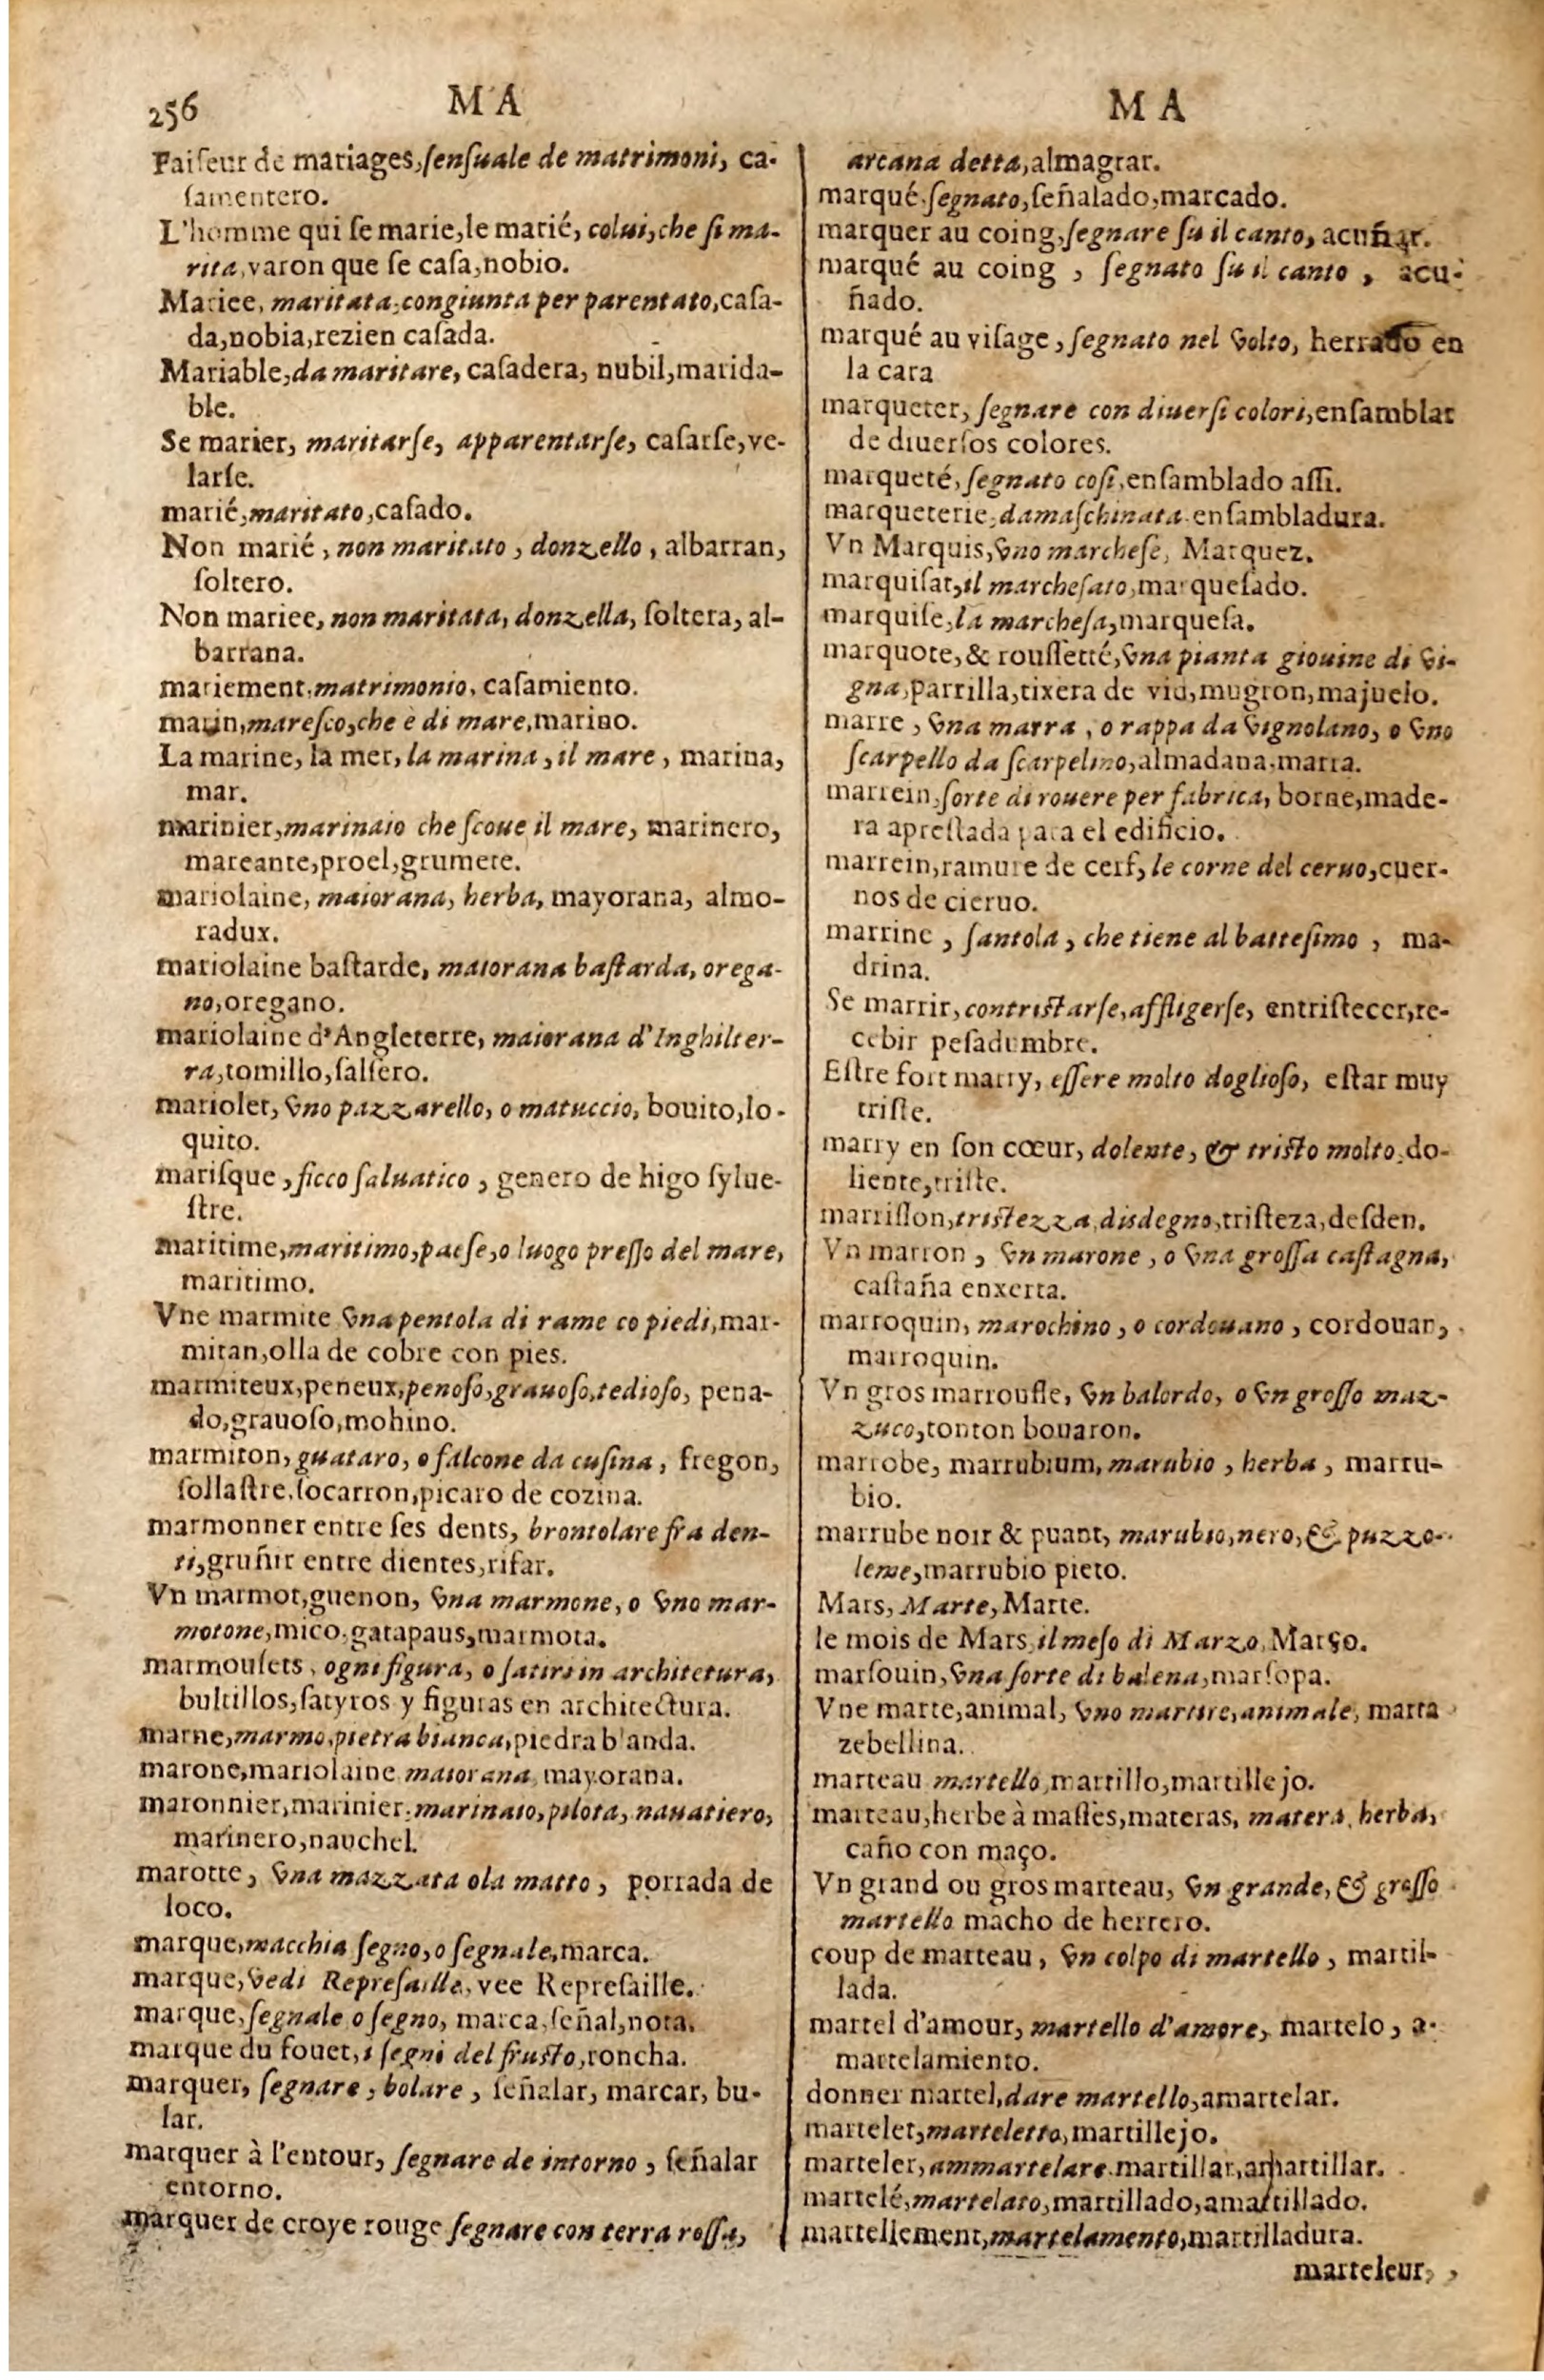 256
MA
MA
Faiſeur de mariages, ſenſuale de matrimoni, ca-
ſamentero.
L'homme qui ſe marie, le marié, colui, che ſi ma-
rita, varon que ſe caſa, nobio.
Mariee, maritata, congiunta per parentato, caſa-
da, nobia, rezien caſada.
Mariable, da maritare, caſadera, nubil, marida-
ble.
Se marier, maritarſe, apparentarſe, caſarſe, ve-
larſe.
marié, maritato, caſado.
Non marié, non maritato, donzello, albarran,
ſoltero.
Non mariee, non maritata, donzella, ſoltera, al-
barrana.
mariement, matrimonio, caſamiento.
marin, mareſco, che è di mare, marino.
La marine, la mer, la marina, il mare, marina,
mar.
marinier, marinaio che ſcoue il mare, marinero,
mareante, proel, grumete.
mariolaine, maiorana, herba, mayorana, almo-
radux.
mariolaine baſtarde, maiorana baſtarda, orega-
no, oregano.
mariolaine d'Angleterre, maiorana d'Inghilter-
ra, tomillo, ſalſero.
mariolet, vno pazzarello, o matuccio, bouito, lo-
quito.
mariſque, ficco ſaluatico, genero de higo ſylue-
ſtre.
maritime, maritimo, paeſe, o luogo preſſo del mare,
maritimo.
Vne marmite vna pentola di rame co piedi, mar-
mitan, olla de cobre con pies.
marmiteux, peneux, penoſo, grauoſo, tedioſo, pena-
do, grauoſo, mohino.
marmiton, guataro, o falcone da cuſina, fregon,
ſollaſtre, ſocarron, picaro de cozina.
marmonner entre ſes dents, brontolare fra den-
ti, gruñir entre dientes, rifar.
Vn marmot, guenon, vna marmone, o vno mar-
motone, mico, gatapaus, marmota.
marmouſets, ogni figura, o ſatiri in architetura,
bultillos, ſatyros y figuras en architectura.
marne, marmo, pietra bianca, piedra blanda.
marone, mariolaine maiorana, mayorana.
maronnier, marinier, marinaio, pilota, nauatiero,
marinero, nauchel.
marotte, vna mazzata ola matto, porrada de
loco.
marque, macchia ſegno, o ſegnale, marca.
marque, vedi Repreſaille, vee Repreſaille.
marque, ſegnale o ſegno, marca, ſeñal, nota.
marque du fouet, i ſegni del fruſto, roncha.
marquer, ſegnare, bolare, ſeñalar, marcar, bu-
lar.
marquer à l'entour, ſegnare de intorno, ſeñalar
entorno.
marquer de croye rouge ſegnare con terra roſſa,
arcana detta, almagrar.
marqué, ſegnato, ſeñalado, marcado.
marquer au coing, ſegnare ſu il canto, acuñar.
marqué au coing, ſegnato ſu il canto, acu-
ñado.
marqué au viſage, ſegnato nel volto, herrado en
la cara
marqueter, ſegnare con diuerſi colori, enſamblar
de diuerſos colores.
marqueté, ſegnato coſi, enſamblado aſſi.
marqueterie, damaſchinata enſambladura.
Vn Marquis, vno marcheſe, Marquez.
marquiſat, il marcheſato, marqueſado.
marquiſe, la marcheſa, marqueſa.
marquote, & rouſſetté, vna pianta giouine di vi-
gna, parrilla, tixera de vid, mugron, majuelo.
marre, vna marra, o rappa da vignolano, o vno
ſcarpello da ſcarpelino, almadana, marra.
marrein, ſorte di rouere per fabrica, borne, made-
ra apreſtada para el edificio.
marrein, ramure de cerf, le corne del ceruo, cuer-
nos de cieruo.
marrine, ſantola, che tiene al batteſimo, ma-
drina.
Se marrir, contriſtarſe, affligerſe, entriſtecer, re-
cebir peſadumbre.
Eſtre fort marry, eſſere molto doglioſo, eſtar muy
triſte.
marry en ſon cœur, dolente, & triſto molto, do-
liente, triſte.
marriſſon, triſtezza, disdegno, triſteza, deſden.
Vn marron, vn marone, o vna groſſa caſtagna,
caſtaña enxerta.
marroquin, marochino, o cordouano, cordouan,
marroquin.
Vn gros marroufle, vn balordo, o vn groſſo maz-
zuco, tonton bouaron.
marrobe, marrubium, marubio, herba, marru-
bio.
marrube noir & puant, marubio, nero, & puzzo-
leme, marrubio pieto.
Mars, Marte, Marte.
le mois de Mars, il meſo di Marzo, Março.
marſouin, vna ſorte di balena, marſopa.
Vne marte, animal, vno martire, animale, marta
zebellina.
marteau martello, martillo, martillejo.
marteau, herbe à maſſes, materas, matera, herba,
caño con maço.
Vn grand ou gros marteau, vn grande, & groſſo
martello macho de herrero.
coup de marteau, vn colpo di martello, martil-
lada.
martel d'amour, martello d'amore, martelo, a-
martelamiento.
donner martel, dare martello, amartelar.
martelet, marteletto, martillejo.
marteler, ammartelare, martillar, amartillar.
martelé, martelato, martillado, amartillado.
martellement, martelamento, martilladura.
marteleur,